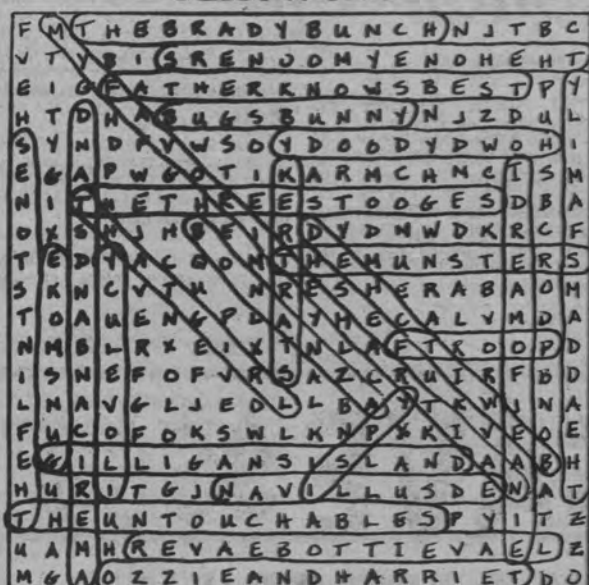 F M T H E B R A D Y B U N C H N J T B C
V T Y B I S R E N O O M Y E N O H E H T
E I G F A T H E R K N O W S B E S T P Y
H T D H A B U G S B U N N Y N J Z D U L
S Y N D F V W S O Y D O O D Y D W O H I
E G A P W G O T I K A R M C H M C I S M
N I T H E T H R E E S T O O G E S D B A
O X S H J H B E I R D Y D N W D K R C F
T E D Y A C Q O N T H E M U N S T E R S
S K N C V T U N R E S H E R A B A O M
T O A U E N G P L A Y H E C A L V M D A
N M B L R X E I X T N L A F T R O O P D
I S N E F O F V R S A Z C R U I R F B D
L N A V G L J E O L L B A Y T K W I N A
F U C O F O K S W L K N P X K I V E O E
E G I L L I G A N S I S L A N D A A B H
H U R I T G J N A V I L L U S D E N A T
T H E U N T O U C H A B L E S P Y I T Z
U A M H R E V A E B O T T I E V A E L Z
M G A O Z Z I E A N D H A R R I E T D O